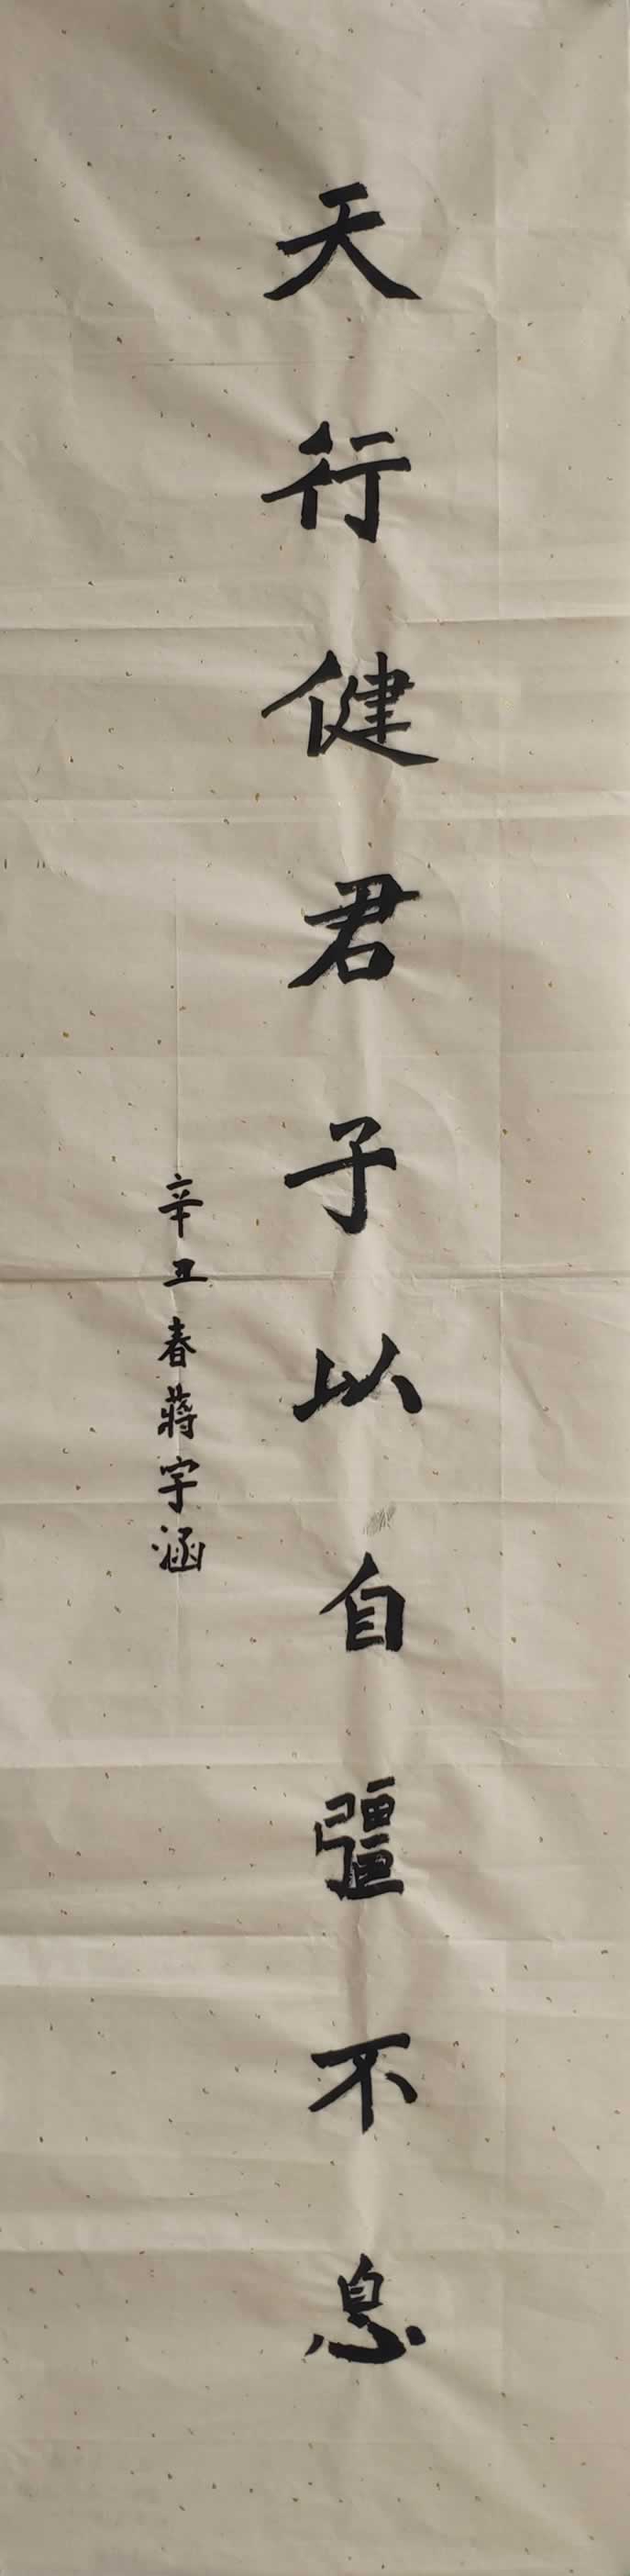 天行健君子以自彊不息
辛丑春蔣宇涵